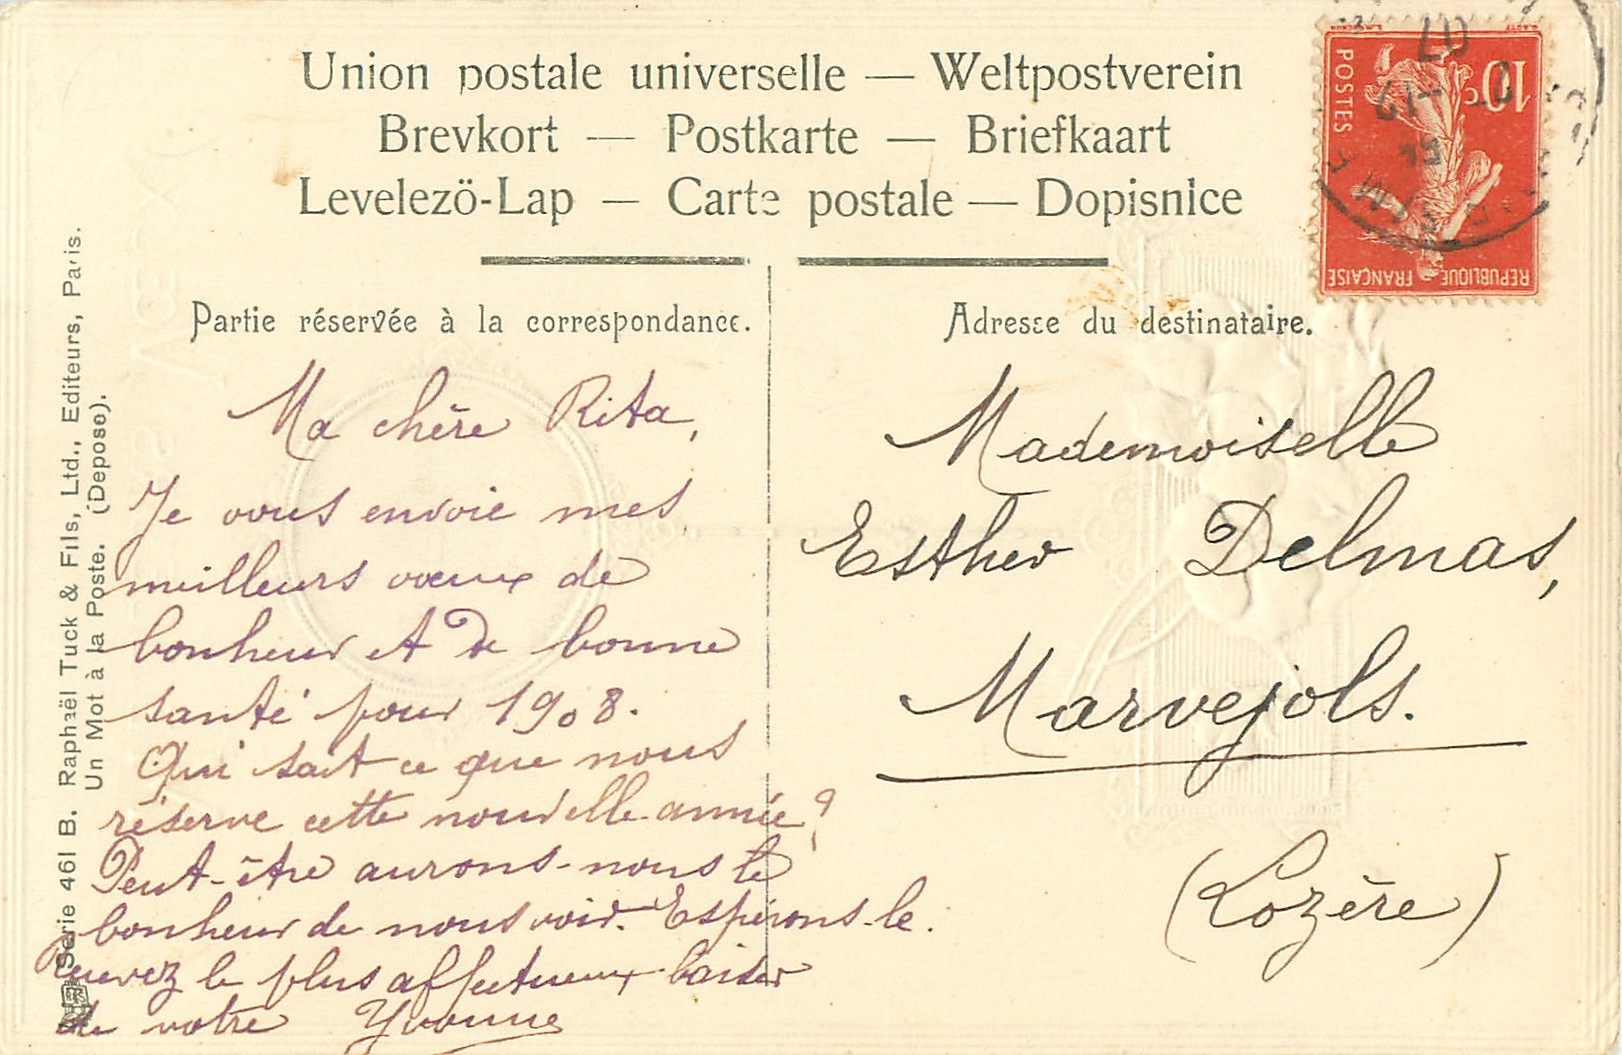 Union postale universelle — Weltpostverein
Brevkort — Postkarte — Briefkaart
Levelezö-Lap — Carte postale — Dopisnice
Partie réservée à la correspondance.
Ma chère Rita,
Je vous envoie mes
meilleurs vœux de
bonheur et de bonne
santé pour 1908.
Qui sait ce que nous
réserve cette nouvelle année?
Peut-être aurons-nous le
bonheur de nous voir. Espérons-le.
Recevez le plus affectueux baiser
de votre Yvonne
Adresse du destinataire.
Mademoiselle
Esther Delmas,
Marvejols.
(Lozère)
Serie 461 B. Raphaël Tuck & Fils, Ltd., Editeurs, Paris.
Un Mot à la Poste. (Deposé).
10c
POSTES
REPUBLIQUE FRANÇAISE
07